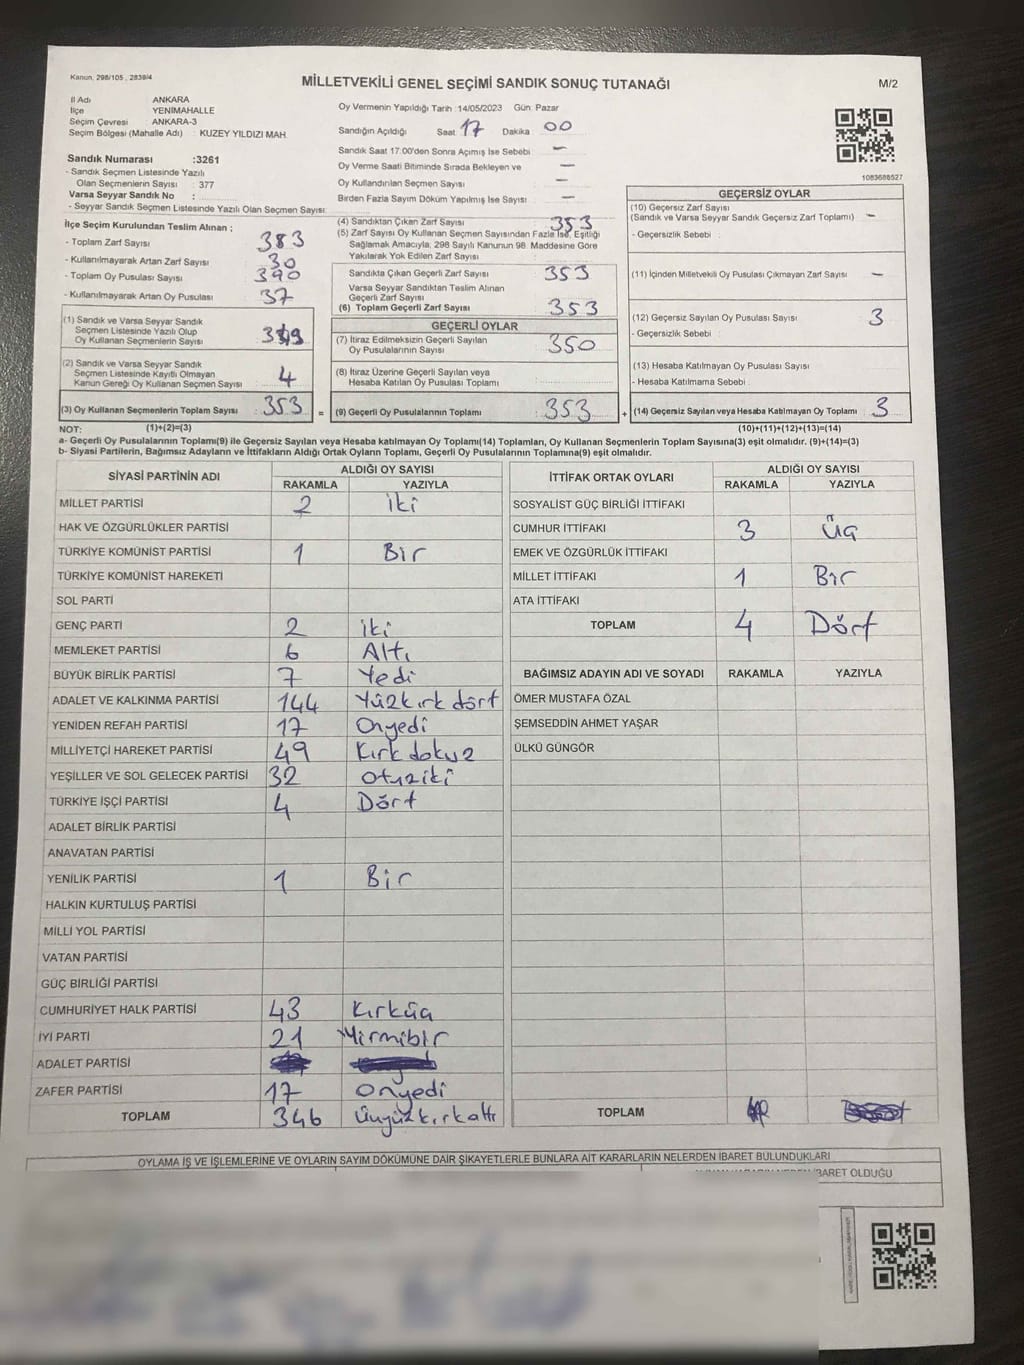 Kanun, 298/105 , 2839/4
MİLLETVEKİLİ GENEL SEÇİMİ SANDIK SONUÇ TUTANAĞI
M/2
İl Adı ANKARA
İlçe YENİMAHALLE
Seçim Çevresi ANKARA-3
Seçim Bölgesi (Mahalle Adı) : KUZEY YILDIZI MAH.
Oy Vermenin Yapıldığı Tarih :14/05/2023 Gün: Pazar
Sandığın Açıldığı Saat 17 Dakika 00
Sandık Saat 17:00'den Sonra Açımış İse Sebebi : -
Oy Verme Saati Bitiminde Sırada Bekleyen ve -
Oy Kullandırılan Seçmen Sayısı : -
Birden Fazla Sayım Döküm Yapılmış İse Sayısı : -
1083688527
Sandık Numarası :3261
- Sandık Seçmen Listesinde Yazılı
Olan Seçmenlerin Sayısı : 377
Varsa Seyyar Sandık No :
- Seyyar Sandık Seçmen Listesinde Yazılı Olan Seçmen Sayısı:
İlçe Seçim Kurulundan Teslim Alınan ;
- Toplam Zarf Sayısı 383
- Kullanılmayarak Artan Zarf Sayısı 30
- Toplam Oy Pusulası Sayısı 390
- Kullanılmayarak Artan Oy Pusulası 37
(1) Sandık ve Varsa Seyyar Sandık
Seçmen Listesinde Yazılı Olup
Oy Kullanan Seçmenlerin Sayısı
(2) Sandık ve Varsa Seyyar Sandık
Seçmen Listesinde Kayıtlı Olmayan
Kanun Gereği Oy Kullanan Seçmen Sayısı 4
(3) Oy Kullanan Seçmenlerin Toplam Sayısı : 353 =
(1)+(2)=(3)
(4) Sandıktan Çıkan Zarf Sayısı 353
(5) Zarf Sayısı Oy Kullanan Seçmen Sayısından Fazla İse, Eşitliği
Sağlamak Amacıyla, 298 Sayılı Kanunun 98. Maddesine Göre
Yakılarak Yok Edilen Zarf Sayısı
Sandıkta Çıkan Geçerli Zarf Sayısı 353
Varsa Seyyar Sandıktan Teslim Alınan
Geçerli Zarf Sayısı
(6) Toplam Geçerli Zarf Sayısı : 353
GEÇERLİ OYLAR
(7) İtiraz Edilmeksizin Geçerli Sayılan
Oy Pusulalarının Sayısı : 350
(8) İtiraz Üzerine Geçerli Sayılan veya
Hesaba Katılan Oy Pusulası Toplamı
(9) Geçerli Oy Pusulalarının Toplamı : 353 +
GEÇERSİZ OYLAR
(10) Geçersiz Zarf Sayısı
(Sandık ve Varsa Seyyar Sandık Geçersiz Zarf Toplamı) -
- Geçersizlik Sebebi :
(11) İçinden Milletvekili Oy Pusulası Çıkmayan Zarf Sayısı -
(12) Geçersiz Sayılan Oy Pusulası Sayısı 3
- Geçersizlik Sebebi :
(13) Hesaba Katılmayan Oy Pusulası Sayısı
- Hesaba Katılmama Sebebi :
(14) Geçersiz Sayılan veya Hesaba Katılmayan Oy Toplamı : 3
(10)+(11)+(12)+(13)=(14)
NOT:
a- Geçerli Oy Pusulalarının Toplamı(9) ile Geçersiz Sayılan veya Hesaba katılmayan Oy Toplamı(14) Toplamları, Oy Kullanan Seçmenlerin Toplam Sayısına(3) eşit olmalıdır. (9)+(14)=(3)
b- Siyasi Partilerin, Bağımsız Adayların ve İttifakların Aldığı Ortak Oyların Toplamı, Geçerli Oy Pusulalarının Toplamına(9) eşit olmalıdır.
SİYASİ PARTİNİN ADI ALDIĞI OY SAYISI
RAKAMLA YAZIYLA
MİLLET PARTİSİ 2 iki
HAK VE ÖZGÜRLÜKLER PARTİSİ
TÜRKİYE KOMÜNİST PARTİSİ 1 Bir
TÜRKİYE KOMÜNİST HAREKETİ
SOL PARTİ
GENÇ PARTİ 2 iki
MEMLEKET PARTİSİ 6 Altı
BÜYÜK BİRLİK PARTİSİ 7 Yedi
ADALET VE KALKINMA PARTİSİ 144 Yüzkırk dört
YENİDEN REFAH PARTİSİ 17 Onyedi
MİLLİYETÇİ HAREKET PARTİSİ 49 Kırk dokuz
YEŞİLLER VE SOL GELECEK PARTİSİ 32 otuziki
TÜRKİYE İŞÇİ PARTİSİ 4 Dört
ADALET BİRLİK PARTİSİ
ANAVATAN PARTİSİ
YENİLİK PARTİSİ 1 Bir
HALKIN KURTULUŞ PARTİSİ
MİLLİ YOL PARTİSİ
VATAN PARTİSİ
GÜÇ BİRLİĞİ PARTİSİ
CUMHURİYET HALK PARTİSİ 43 Kırküç
İYİ PARTİ 21 Yirmibir
ADALET PARTİSİ
ZAFER PARTİSİ 17 Onyedi
TOPLAM 346 Üçyüzkırkaltı
İTTİFAK ORTAK OYLARI ALDIĞI OY SAYISI
RAKAMLA YAZIYLA
SOSYALİST GÜÇ BİRLİĞİ İTTİFAKI
CUMHUR İTTİFAKI 3 Üç
EMEK VE ÖZGÜRLÜK İTTİFAKI
MİLLET İTTİFAKI 1 Bir
ATA İTTİFAKI
TOPLAM 4 Dört
BAĞIMSIZ ADAYIN ADI VE SOYADI RAKAMLA YAZIYLA
ÖMER MUSTAFA ÖZAL
ŞEMSEDDİN AHMET YAŞAR
ÜLKÜ GÜNGÖR
TOPLAM
OYLAMA İŞ VE İŞLEMLERİNE VE OYLARIN SAYIM DÖKÜMÜNE DAİR ŞİKAYETLERLE BUNLARA AİT KARARLARIN NELERDEN İBARET BULUNDUKLARI
İBARET OLDUĞU